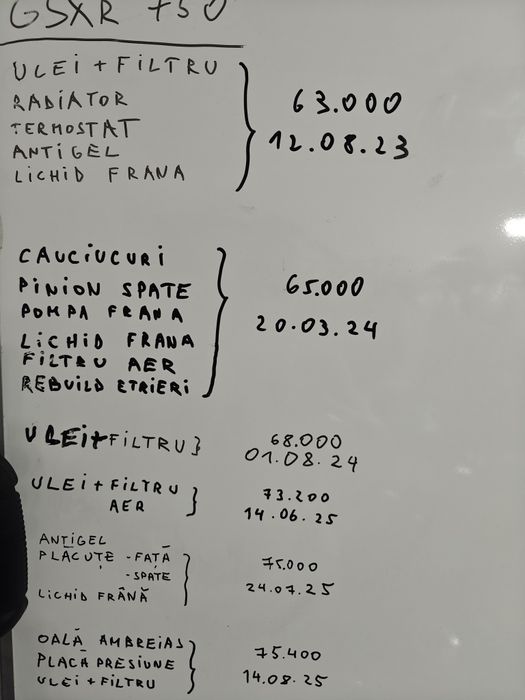 GSXR 750
ULEI + FILTRU
RADIATOR
TERMOSTAT
ANTIGEL
LICHID FRANA
63.000
12.08.23
CAUCIUCURI
PINION SPATE
POMPA FRANA
LICHID FRANA
FILTRU AER
REBUILD ETRIERI
65.000
20.03.24
ULEI+FILTRU
68.000
01.08.24
ULEI + FILTRU
AER
73.200
14.06.25
ANTIGEL
PLĂCUȚE - FAȚĂ
- SPATE
LICHID FRÂNĂ
75.000
24.07.25
OALĂ AMBREIAS
PLACĂ PRESIUNE
ULEI + FILTRU
75.400
14.08.25